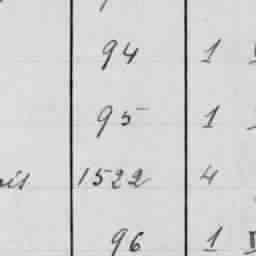 94 1
95 1
1522 4
96 1